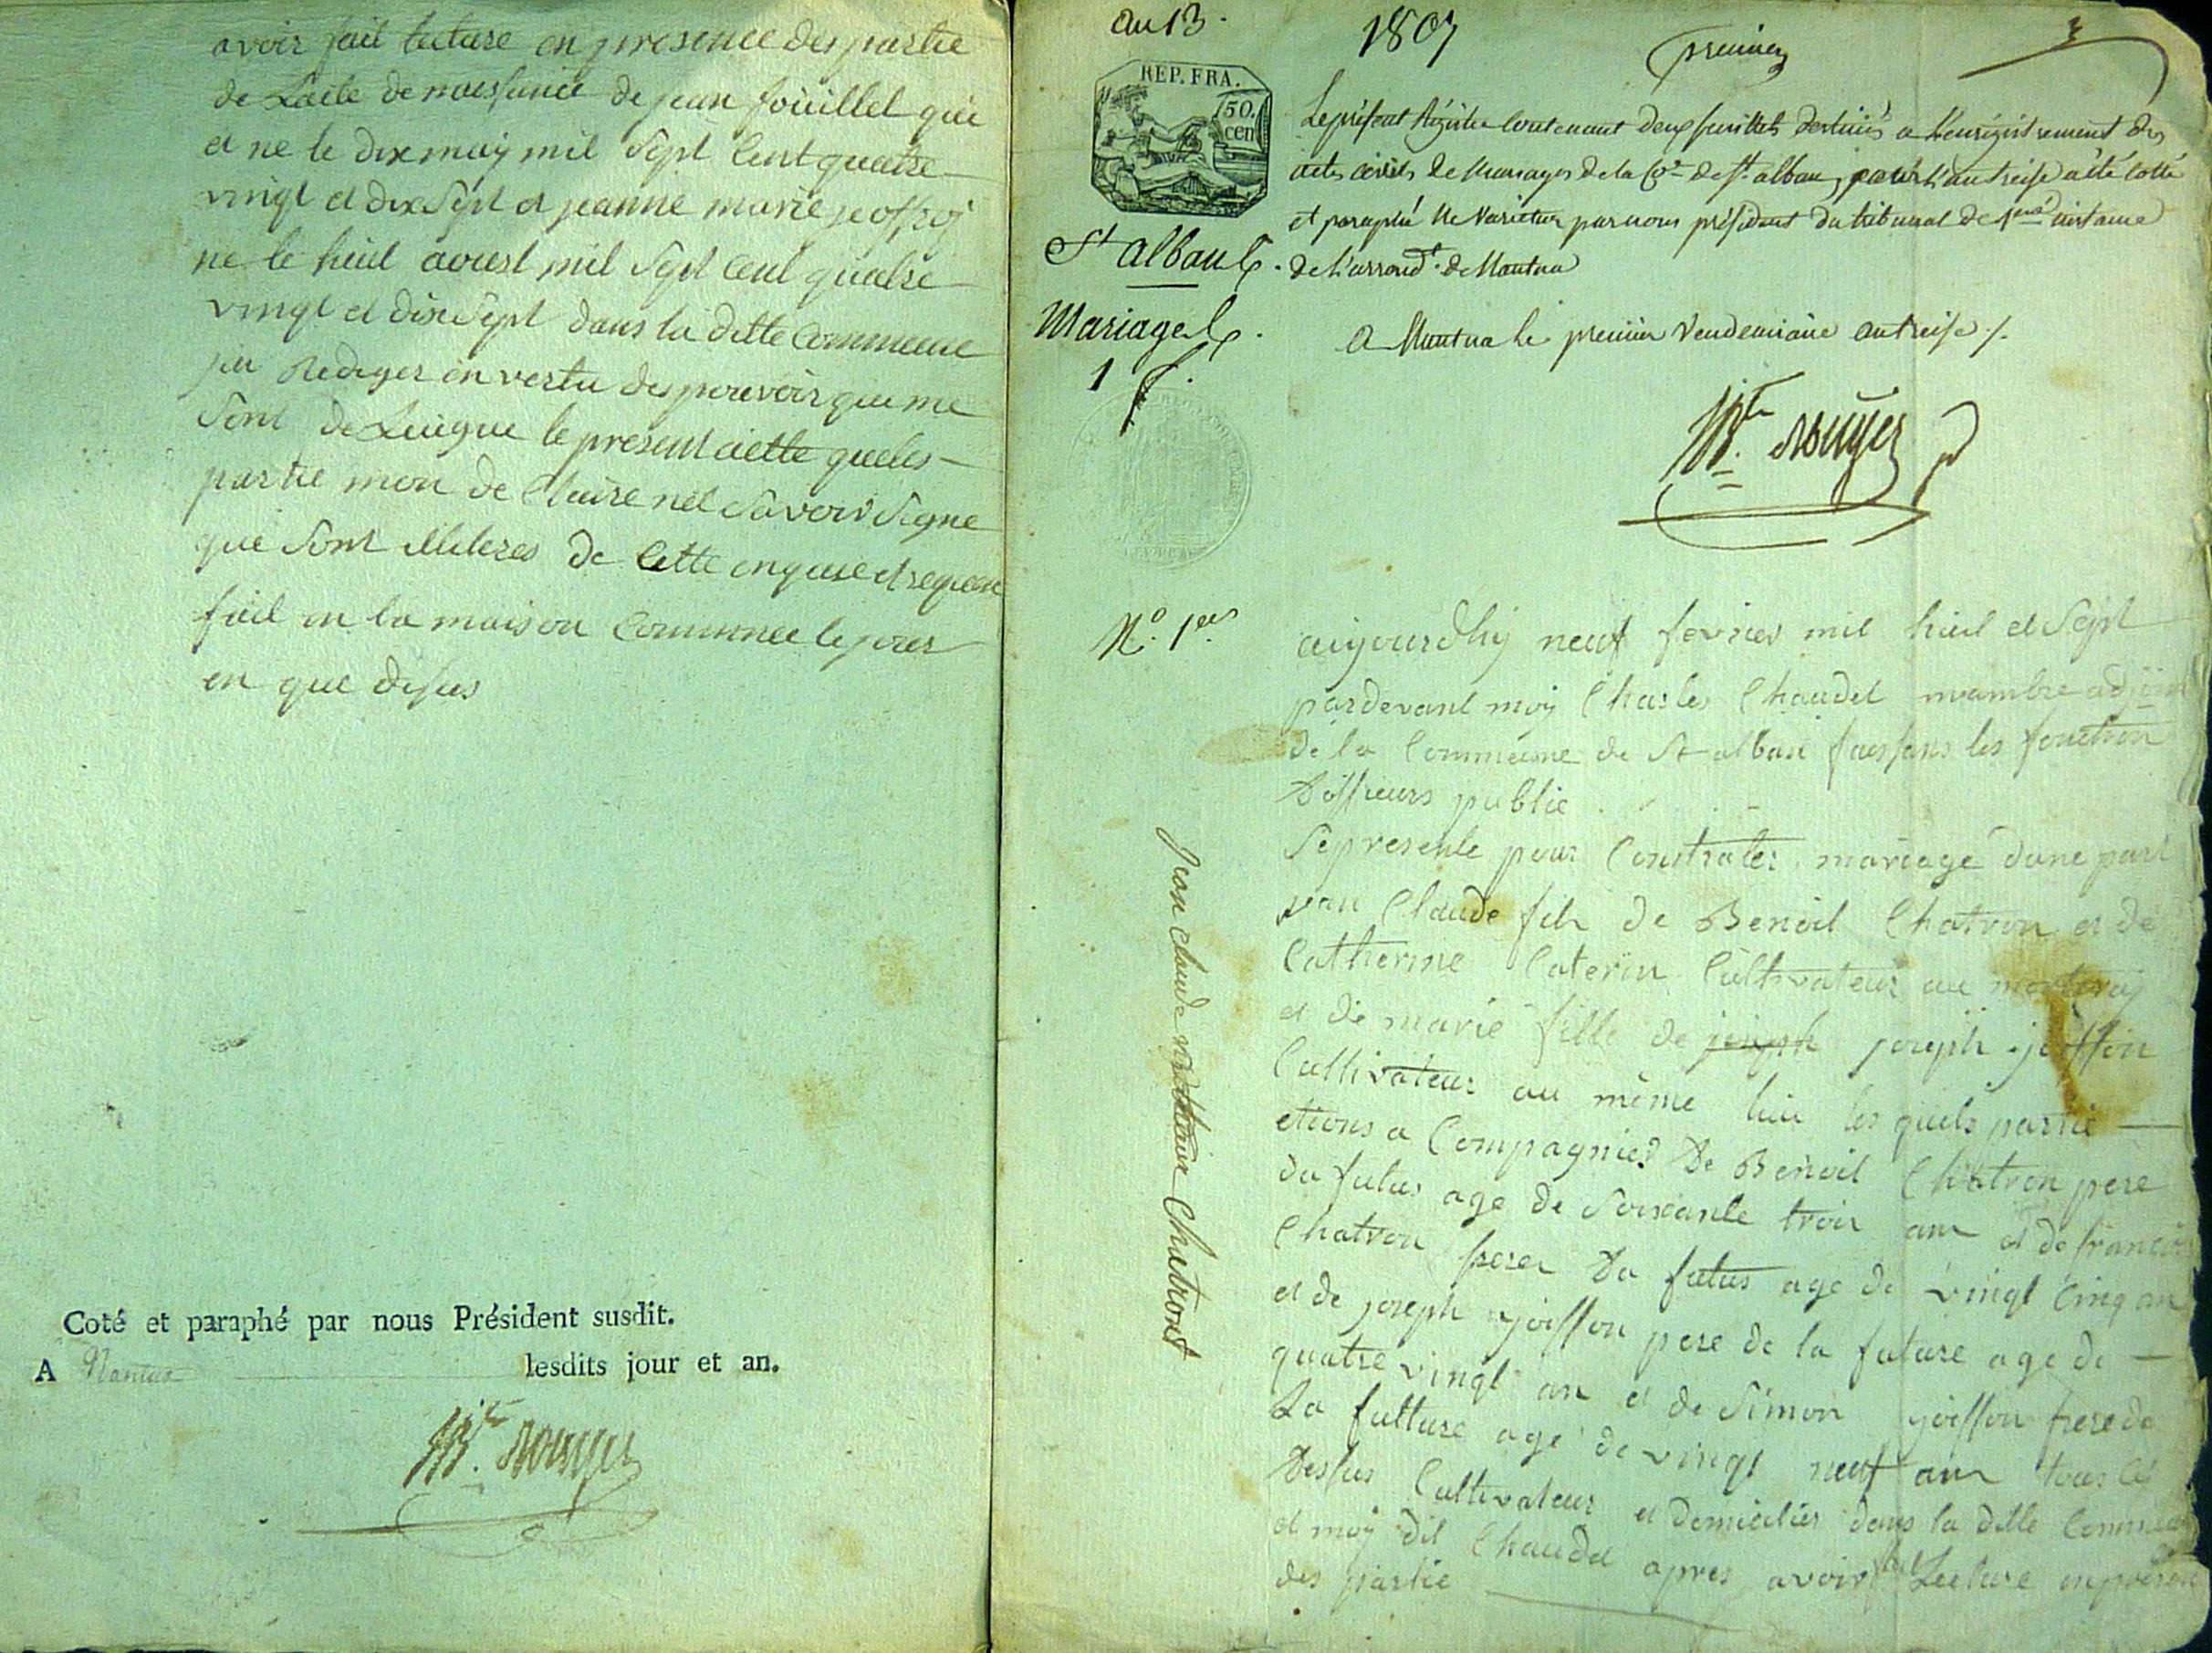 avoir fait lecture en presence des partie
de Lacte de naissance de jean fouillet qui
et ne le dix may mil sept cent quatre
vingt et dix sept et jeanne marie jeoffroj
ne le huit aoust mil sept cent quatre
vingt et dix sept dans la ditte commeune
jai Rediger en vertu des pouvoir qui me
sont de Leigue le present aette queles
partie mon de Claire nel savoir signe
que sont illiteres de cette
fait en la maison Commnee le jour
en que desus
Coté et paraphé par nous Président susdit.
A Nantua lesdits jour et an.
Bte Rouyer
an 13. 1807 premier
REP. FRA.
50.
cen
Le présent Régistre Contenant deux feuillets destinés a L'enrégistrement des
actes civils de Mariages de la Cne de St alban, pour l'an treise a été cotté
et paraphé Ne Varietur par nous président du tribunal de 1ere instance
de L'arrondt. de Nantua
St Alban
Mariages.
A Nantua le premier Vendemiaire an treise ./.
1
Bte Rouyer
N.o 1er
aujourdhuj neuf fevrier mil huit et sept
pardevant moy Charles Chaudet mambre adjoint
de la Commeune de St alban faissans les fonction
Doffieurs publie
Se presente pour Contrater mariage dune part
jean Claude fils de Benoit Chatron et de
Catherine Caterin Cultivateur au
et de marie fille de joseph joseph joiffon
Cultivateur au même lieu les quels partie
etions a Compagnies De Benoit Chatron pere
du futur age de Soixante trois ans et de francois
Chatron frere Du futur age de vingt cinq an
et de joseph joiffon pere de la future age de
quatre vingt an et de Simon joiffon frere de
La future age de vingt neuf ans tous les
Dessus Cultivateur et domicilies dans la ditte Commeune
et moy dit Chaudet apres avoir fait Lecture en presence
des partie
Jean claude Chatront